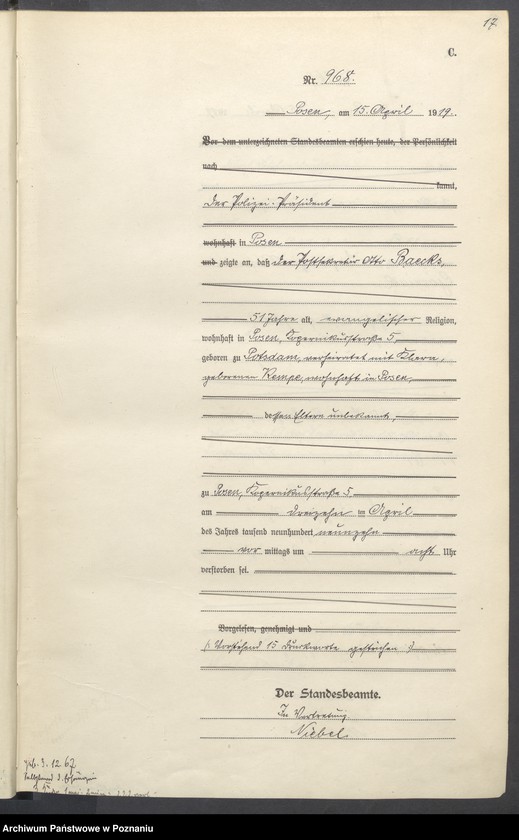 17
C.
Nr. 968.
Posen, am 15. April 1919.
Vor dem unterzeichneten Standesbeamten erschien heute, der Persönlichkeit
nach
kannt,
der Polizei-Präsident
wohnhaft in Posen
und zeigte an, daß der Postsekretär Otto Baecks,
51 Jahre alt, evangelischer Religion,
wohnhaft in Posen, Kopernikusstraße 5,
geboren zu Potsdam, verheiratet mit Klara,
geborenen Kempe, wohnhaft in Posen,
dessen Eltern unbekannt,
zu Posen, Kopernikusstraße 5
am dreizehn im April
des Jahres tausend neunhundert neunzehn
vor mittags um acht Uhr
verstorben sei.
Vorgelesen, genehmigt und
(: Vorstehend 15 Druckworte gestrichen :)
Der Standesbeamte.
In Vertretung
Niebel
geb. 3. 12 67
Archiwum Państwowe w Poznaniu